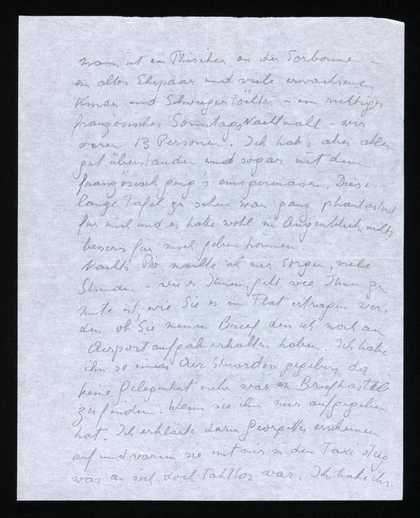 mann ist ein Physiker an der Sorbonne –
ein altes Ehepaar und viele erwachsene
Kinder und Schwiegertöchter – ein richtiges
französisches Sonntags Nachtmahl – wir
waren 13 Personen. Ich hab's aber alles
gut überstanden und sogar mit dem
französisch ging's einigermassen. Diese
lange Tafel zu sehen war ganz phantastisch
für mich und es hätte wohl im Augenblick nichts
besseres für mich geben können.
Nachts machte ich mir Sorgen, viele
Stunden – wie es Ihnen geht, wie Ihnen zu
Mute ist, wie Sie es im Flat ertragen wer-
den ob Sie meinen Brief den ich noch am
Airport aufgab erhalten haben. Ich habe
ihn so einem Air Stuardess gegeben, da
keine Gelegenheit mehr war en Briefkastl
zu finden. Wenn sie ihn nur aufgegeben
hat. Ich erklärte darin Georgettes erscheinen
auf und warum sie mit mir in den Taxi stieg
was an sich doch taktlos war. Ich habe ihr